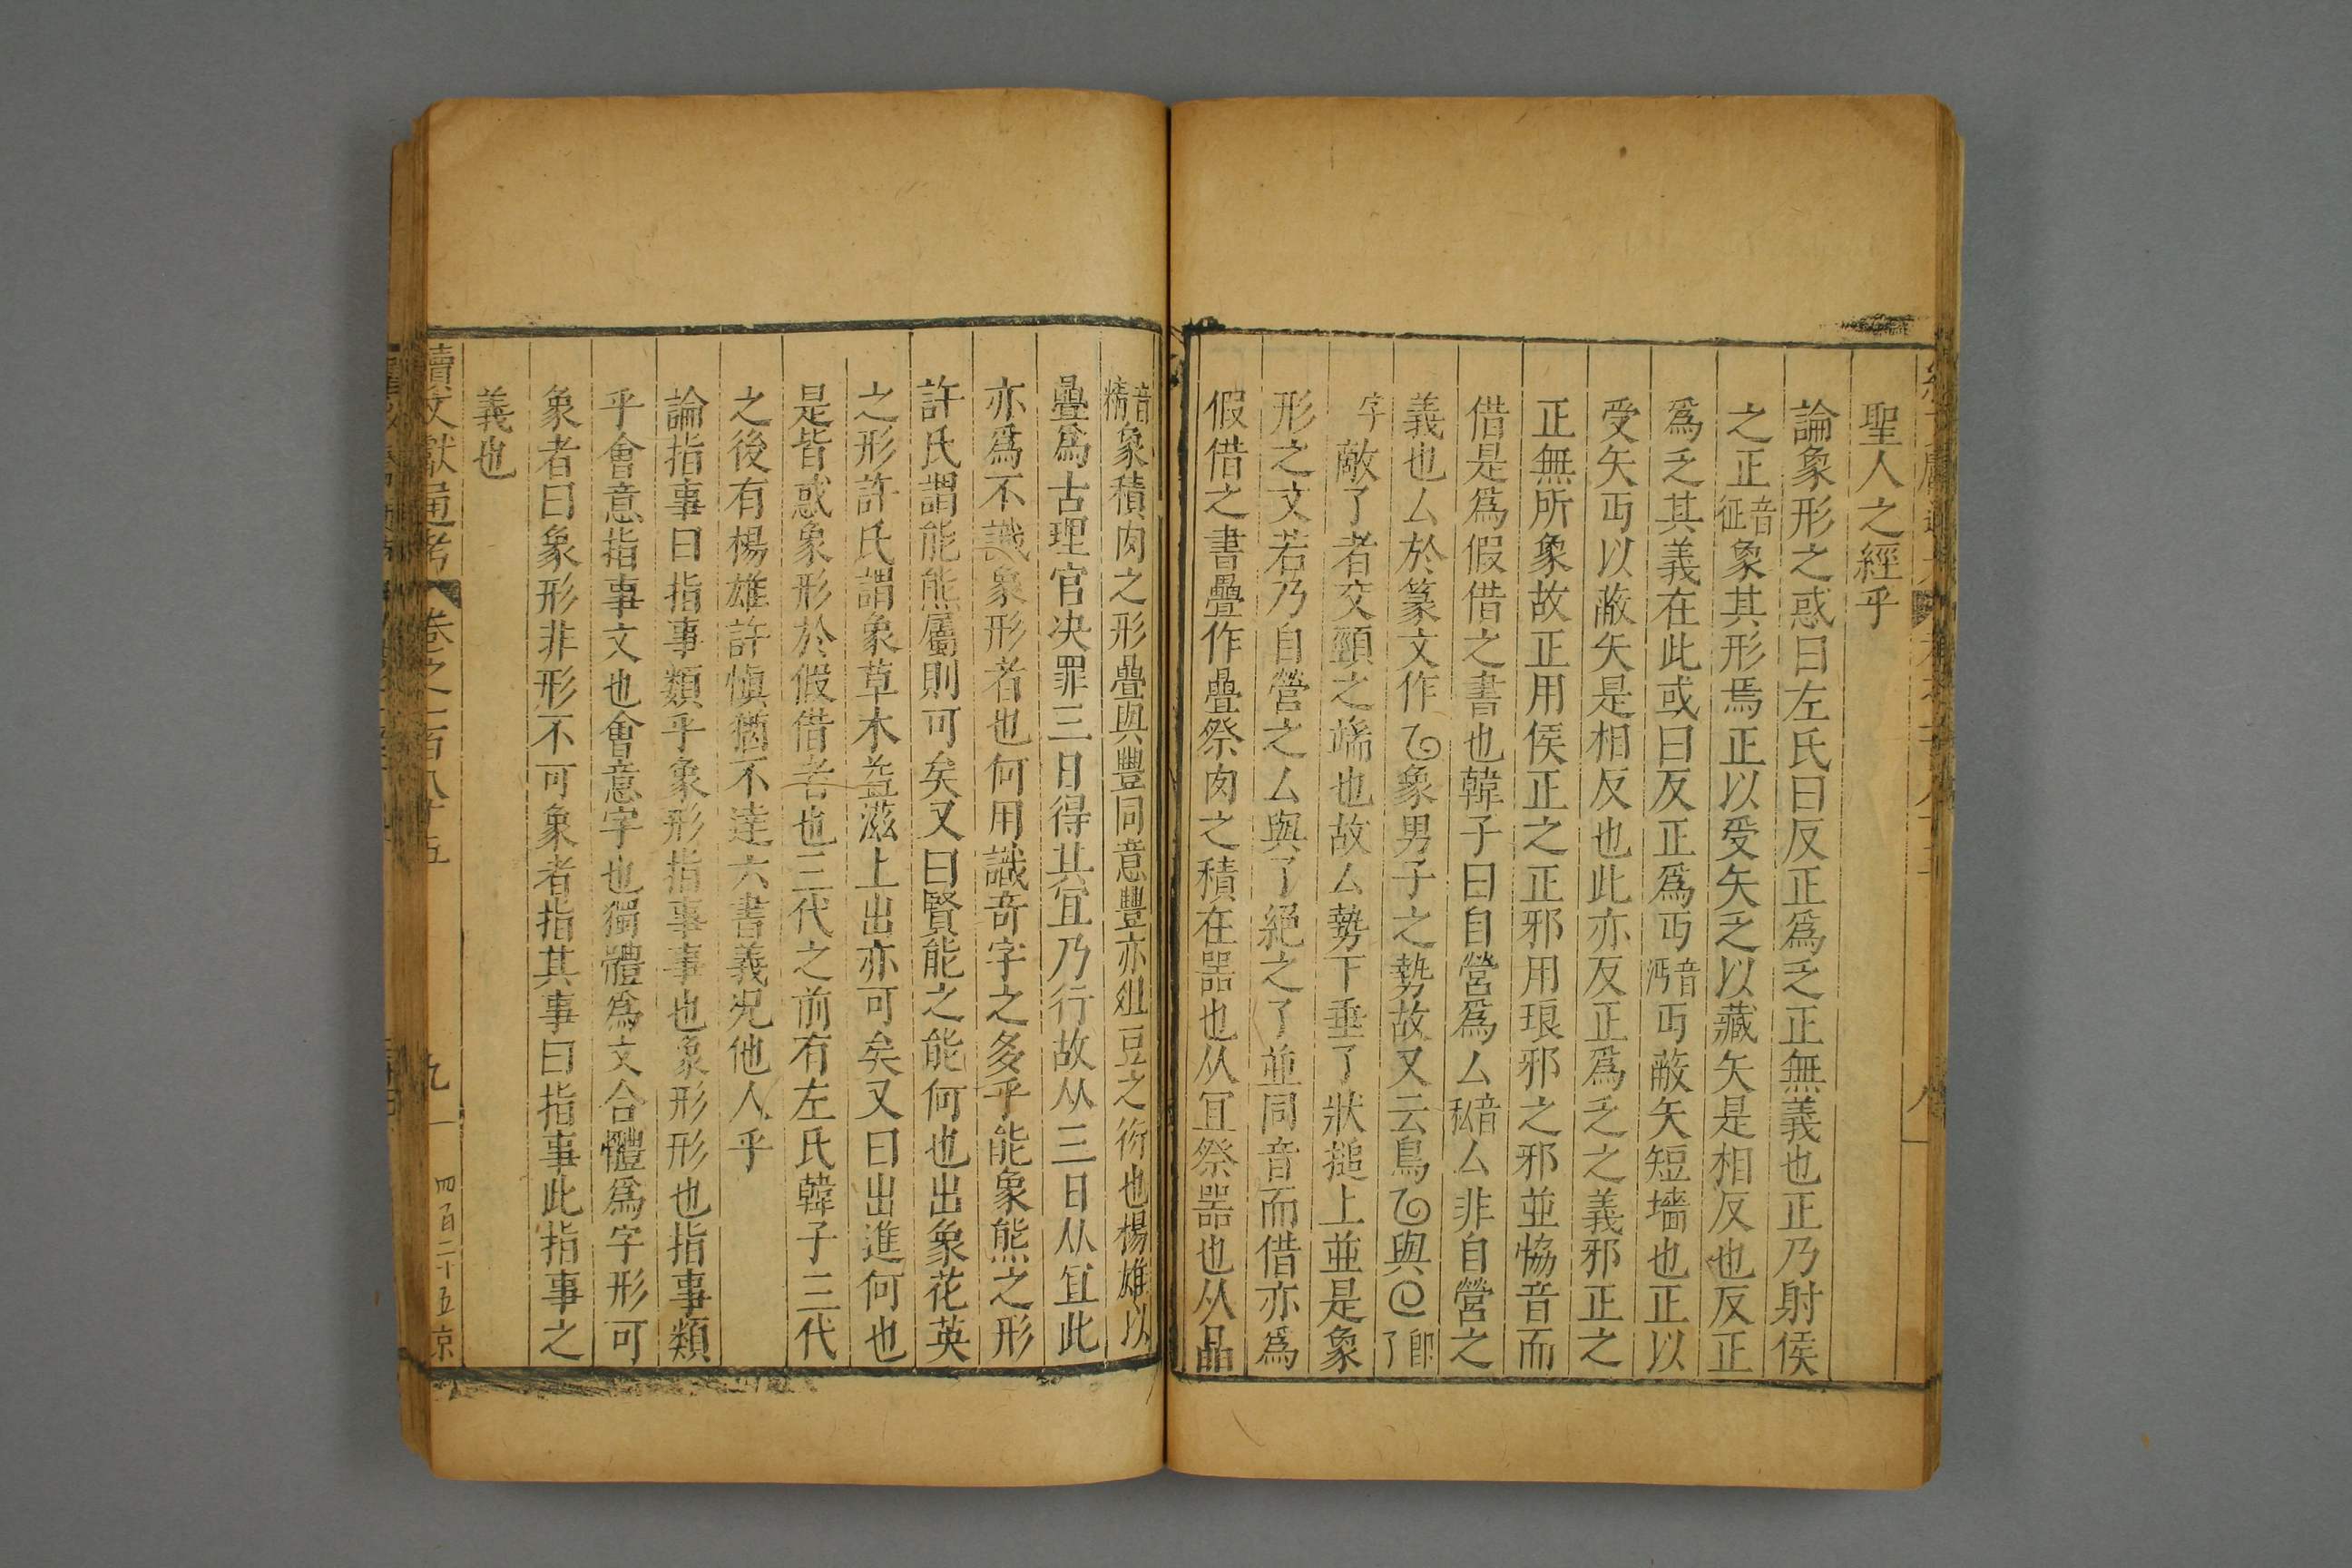 聖人之經乎
論象形之惑曰左氏曰反正為乏正無義也正乃射侯
之正音征象其形焉正以受矢乏以藏矢是相反也反正
為乏其義在此或曰反正為丏音沔丏蔽矢短墻也正以
受矢丏以蔽矢是相反也此亦反正為乏之義邪正之
正無所象故正用侯正之正邪用琅邪之邪並恊音而
借是為假借之書也韓子曰自營為厶音私厶非自營之
義也厶於篆文作象男子之勢故又云鳥與即了
字敵了者交頸之端也故厶勢下垂了狀槌上並是象
形之文若乃自營之厶與了絕之了並同音而借亦為
假借之書疊作疊祭肉之積在器也从冝祭器也从晶
音精象積肉之形疊與豐同意豐亦俎豆之衍也楊雄以
疊為古理官决罪三日得其冝乃行故从三日从冝此
亦為不識象形者也何用識奇字之多乎能象熊之形
許氏謂能熊屬則可矣又曰賢能之能何也出象花英
之形許氏謂象草木益滋上出亦可矣又曰出進何也
是皆惑象形於假借者也三代之前有左氏韓子三代
之後有楊雄許慎猶不達六書義况他人乎
論指事曰指事類乎象形指事事也象形形也指事類
乎會意指事文也會意字也獨體為文合體為字形可
象者曰象形非形不可象者指其事曰指事此指事之
義也
續文獻通考 卷之一百八十五 九 四百二十五 京